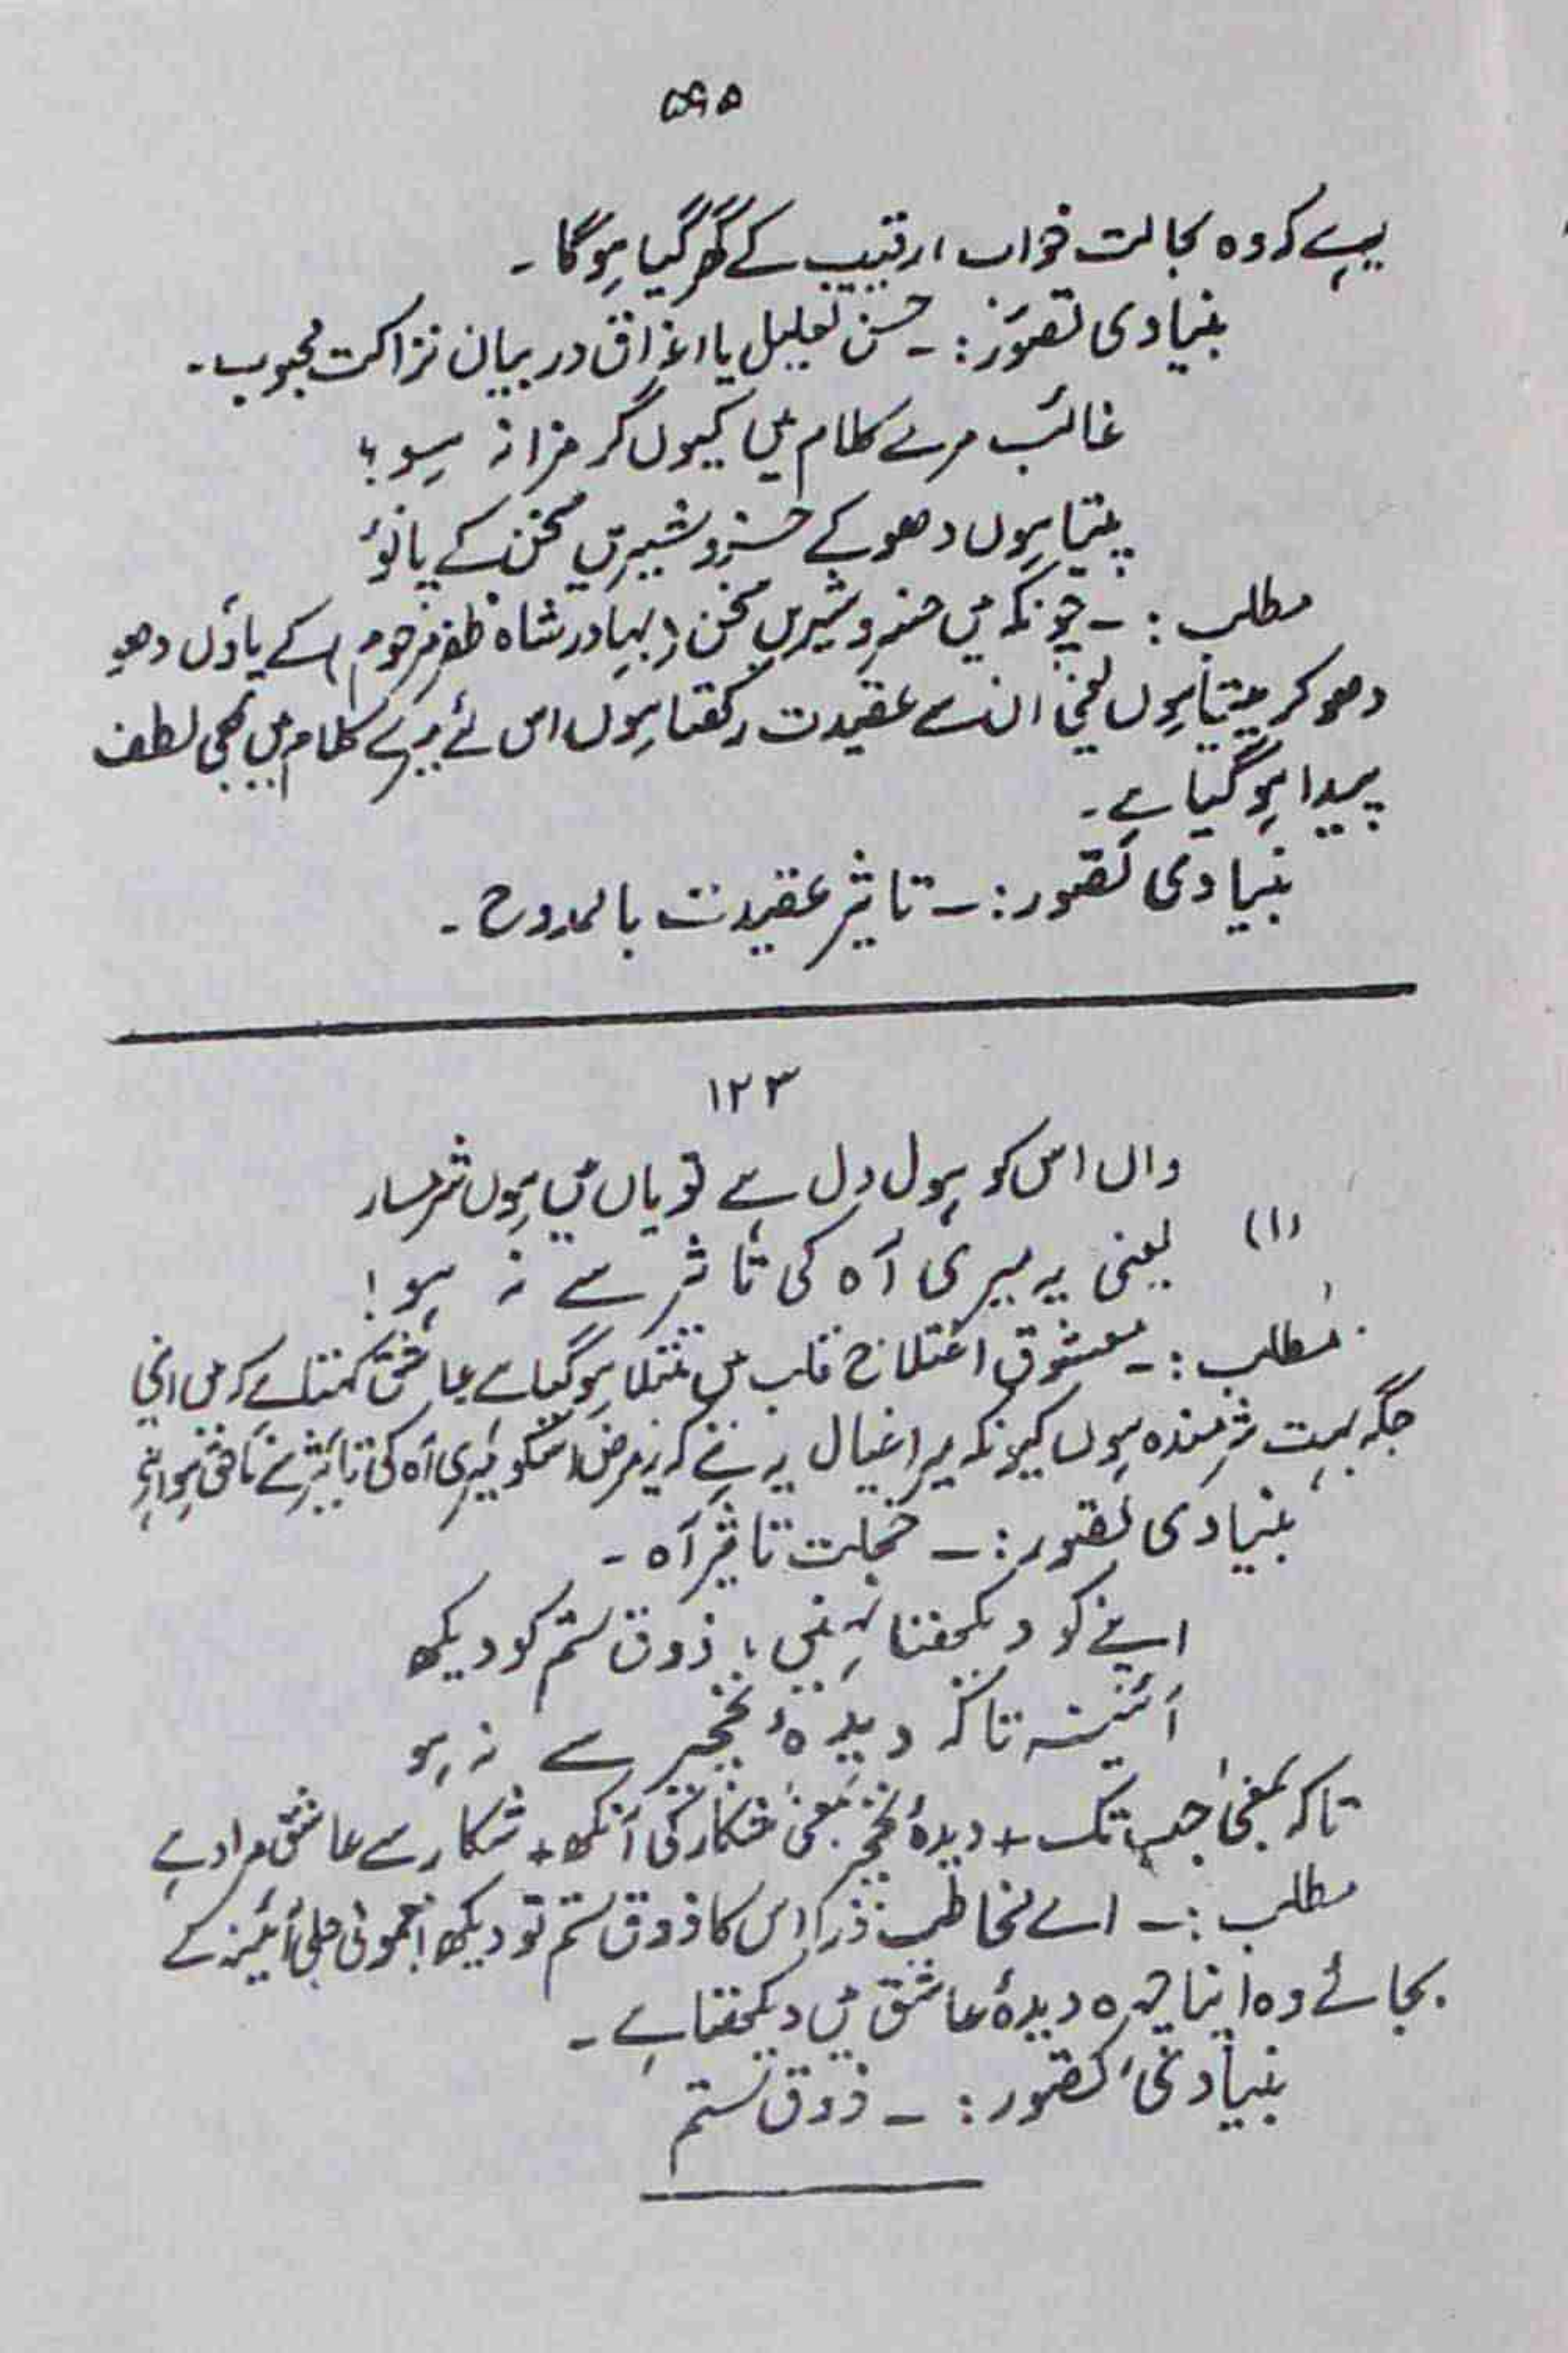 ۵۹۵
ہے کہ وہ بحالت خواب، رقیب کے گھر گیا ہوگا۔
بنیادی تصوّر:۔ حسن تعلیل یا اغراق در بیان نزاکت محبوب۔
غالبؔ مرے کلام میں کیوں کر مزا نہ ہو؟
پیتا ہوں دھو کے خسروِ شیریں سخن کے پانوٴ
مطلب:۔ چونکہ میں خسروِ شیریں سخن (بہادر شاہ ظفر مرحوم) کے پاوٴں دھو
دھو کر پیتا ہوں یعنی ان سے عقیدت رکھتا ہوں اس لئے میرے کلام میں بھی لطف
پیدا ہو گیا ہے۔
بنیادی تصور:۔ تاثیر عقیدت با لممدوح۔
۱۲۳
واں اس کو ہول دل ہے تو یاں میں ہوں شرمسار
(۱) یعنی یہ میری آہ کی تاثیر سے نہ ہو!
مطلب:۔ معشوق اختلاج قلب میں مبتلا ہو گیا ہے عاشق کہتا ہے کہ میں اپنی
جگہ بہت شرمندہ ہوں کیونکہ میرا خیال یہ ہے کہ یہ مرض اسکو میری آہ کی تاثیر سے لاحق ہوا ہے
بنیادی تصور:۔ خجلت تاثیر آہ۔
اپنے کو دیکھتا نہیں، ذوق ستم کو دیکھ
آئینہ تاکہ دیدۂ نخچیر سے نہ ہو
تاکہ بمعنیٰ جب تک + دیدۂ نخچیر بمعنیٰ شکار کی آنکھ + شکار سے عاشق مراد ہے
مطلب:۔ اے مخاطب ذرا اس کا ذوق ستم تو دیکھ! معمولی حلبی آئینہ کے
بجائے وہ اپنا چہرہ دیدۂ عاشق میں دیکھتا ہے۔
بنیادی تصور:۔ ذوق ستم